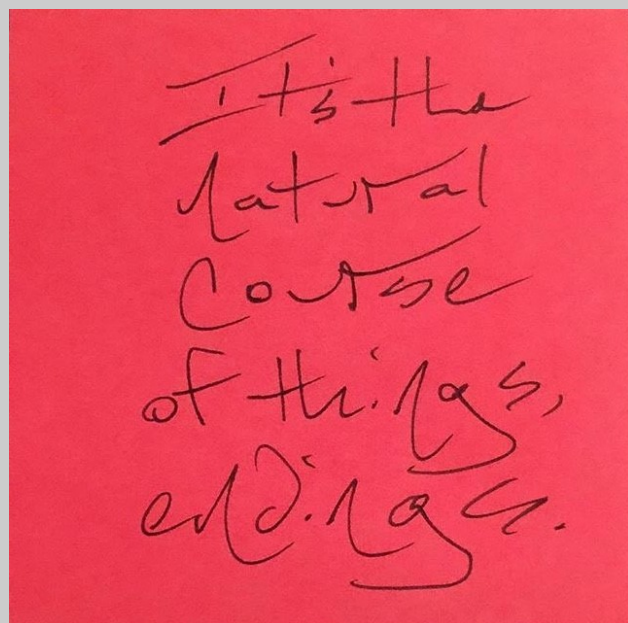 It's the
natural
course
of things,
endings.